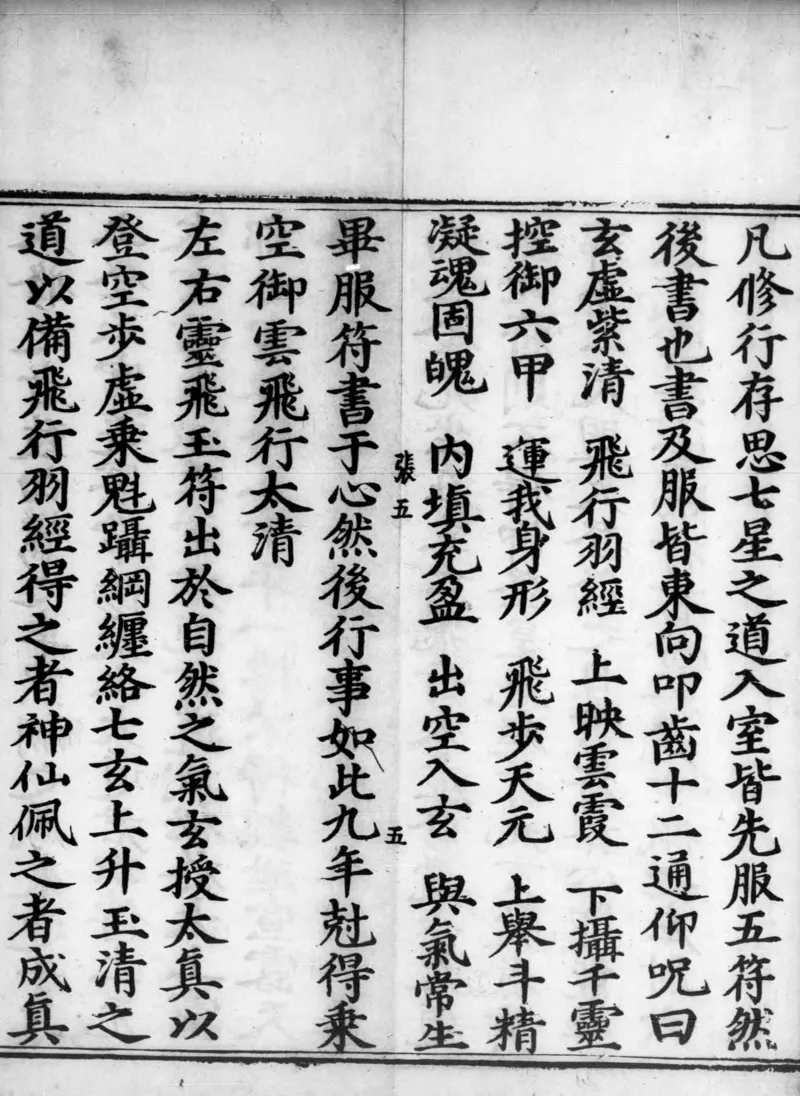 凡修行存思七星之道入室皆先服五符然
後書也書及服皆東向叩齒十二通仰呪曰
玄虛紫清 飛行羽經 上映雲霞 下攝千靈
控御六甲 運我身形 飛步天元 上舉斗精
凝魂固魄 內填充盈 出空入玄 與氣常生
張五 五
畢服符書于心然後行事如此九年尅得乗
空御雲飛行太清
左右靈飛玉符出於自然之氣玄授太真以
登空步虛乗魁躡綱纏絡七玄上升玉清之
道以備飛行羽經得之者神仙佩之者成真